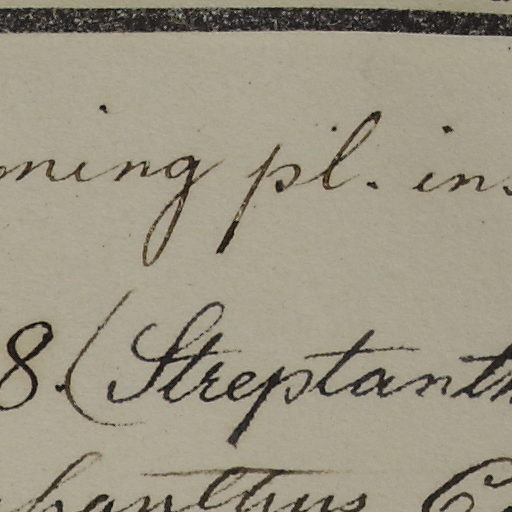 ning pl. in
8. (Streptanth
hanthus C